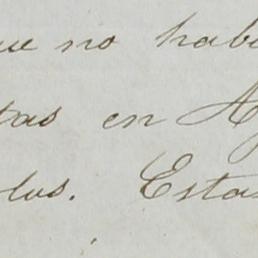 ue no hab
tas en A
los. Esta